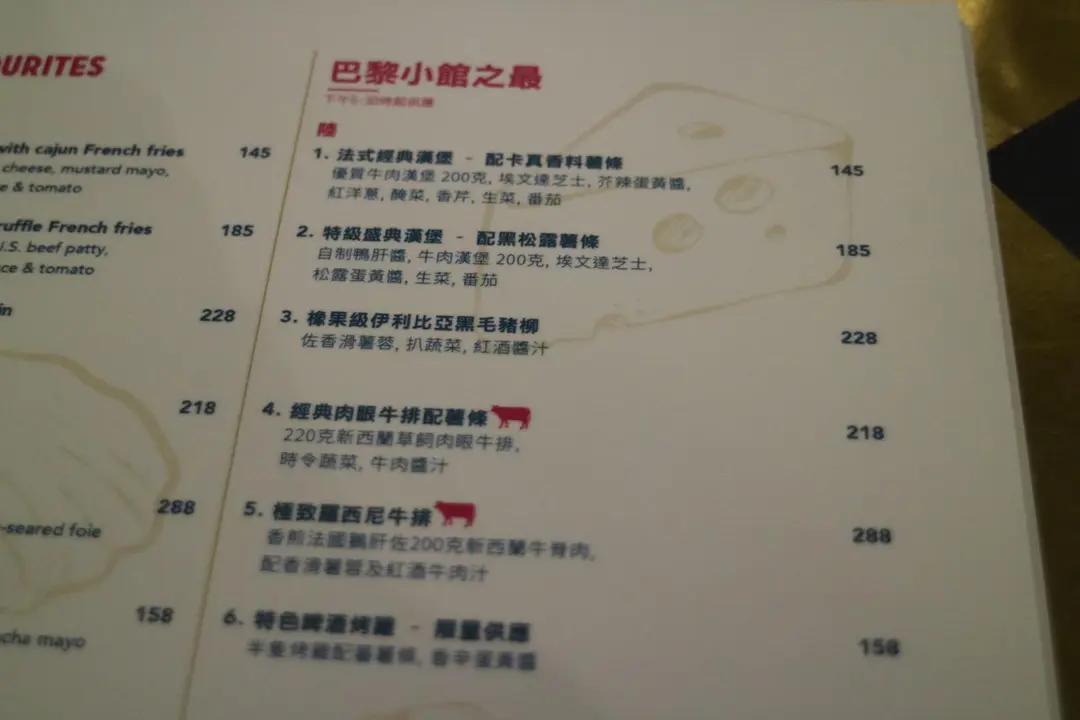 URITES
with cajun French fries 145
cheese, mustard mayo,
e & tomato
ruffle French fries 185
U.S. beef patty,
ce & tomato
in 228
218
288
-seared foie
158
cha mayo
巴黎小館之最
陸
1. 法式經典漢堡 - 配卡真香料薯條 145
優質牛肉漢堡 200克, 埃文達芝士, 芥辣蛋黃醬,
紅洋蔥, 醃菜, 香芹, 生菜, 番茄
2. 特級盛典漢堡 - 配黑松露薯條 185
自制鴨肝醬, 牛肉漢堡 200克, 埃文達芝士,
松露蛋黃醬, 生菜, 番茄
3. 橡果級伊利比亞黑毛豬柳 228
佐香滑薯蓉, 扒蔬菜, 紅酒醬汁
4. 經典肉眼牛排配薯條 218
220克新西蘭草飼肉眼牛排,
時令蔬菜, 牛肉醬汁
5. 極致羅西尼牛排 288
香煎法國鵝肝佐200克新西蘭牛脊肉,
配香滑薯蓉及紅酒牛肉汁
6. 特色啤酒烤雞 - 限量供應 158
半隻烤雞配蕃薯條, 香辛蛋黃醬